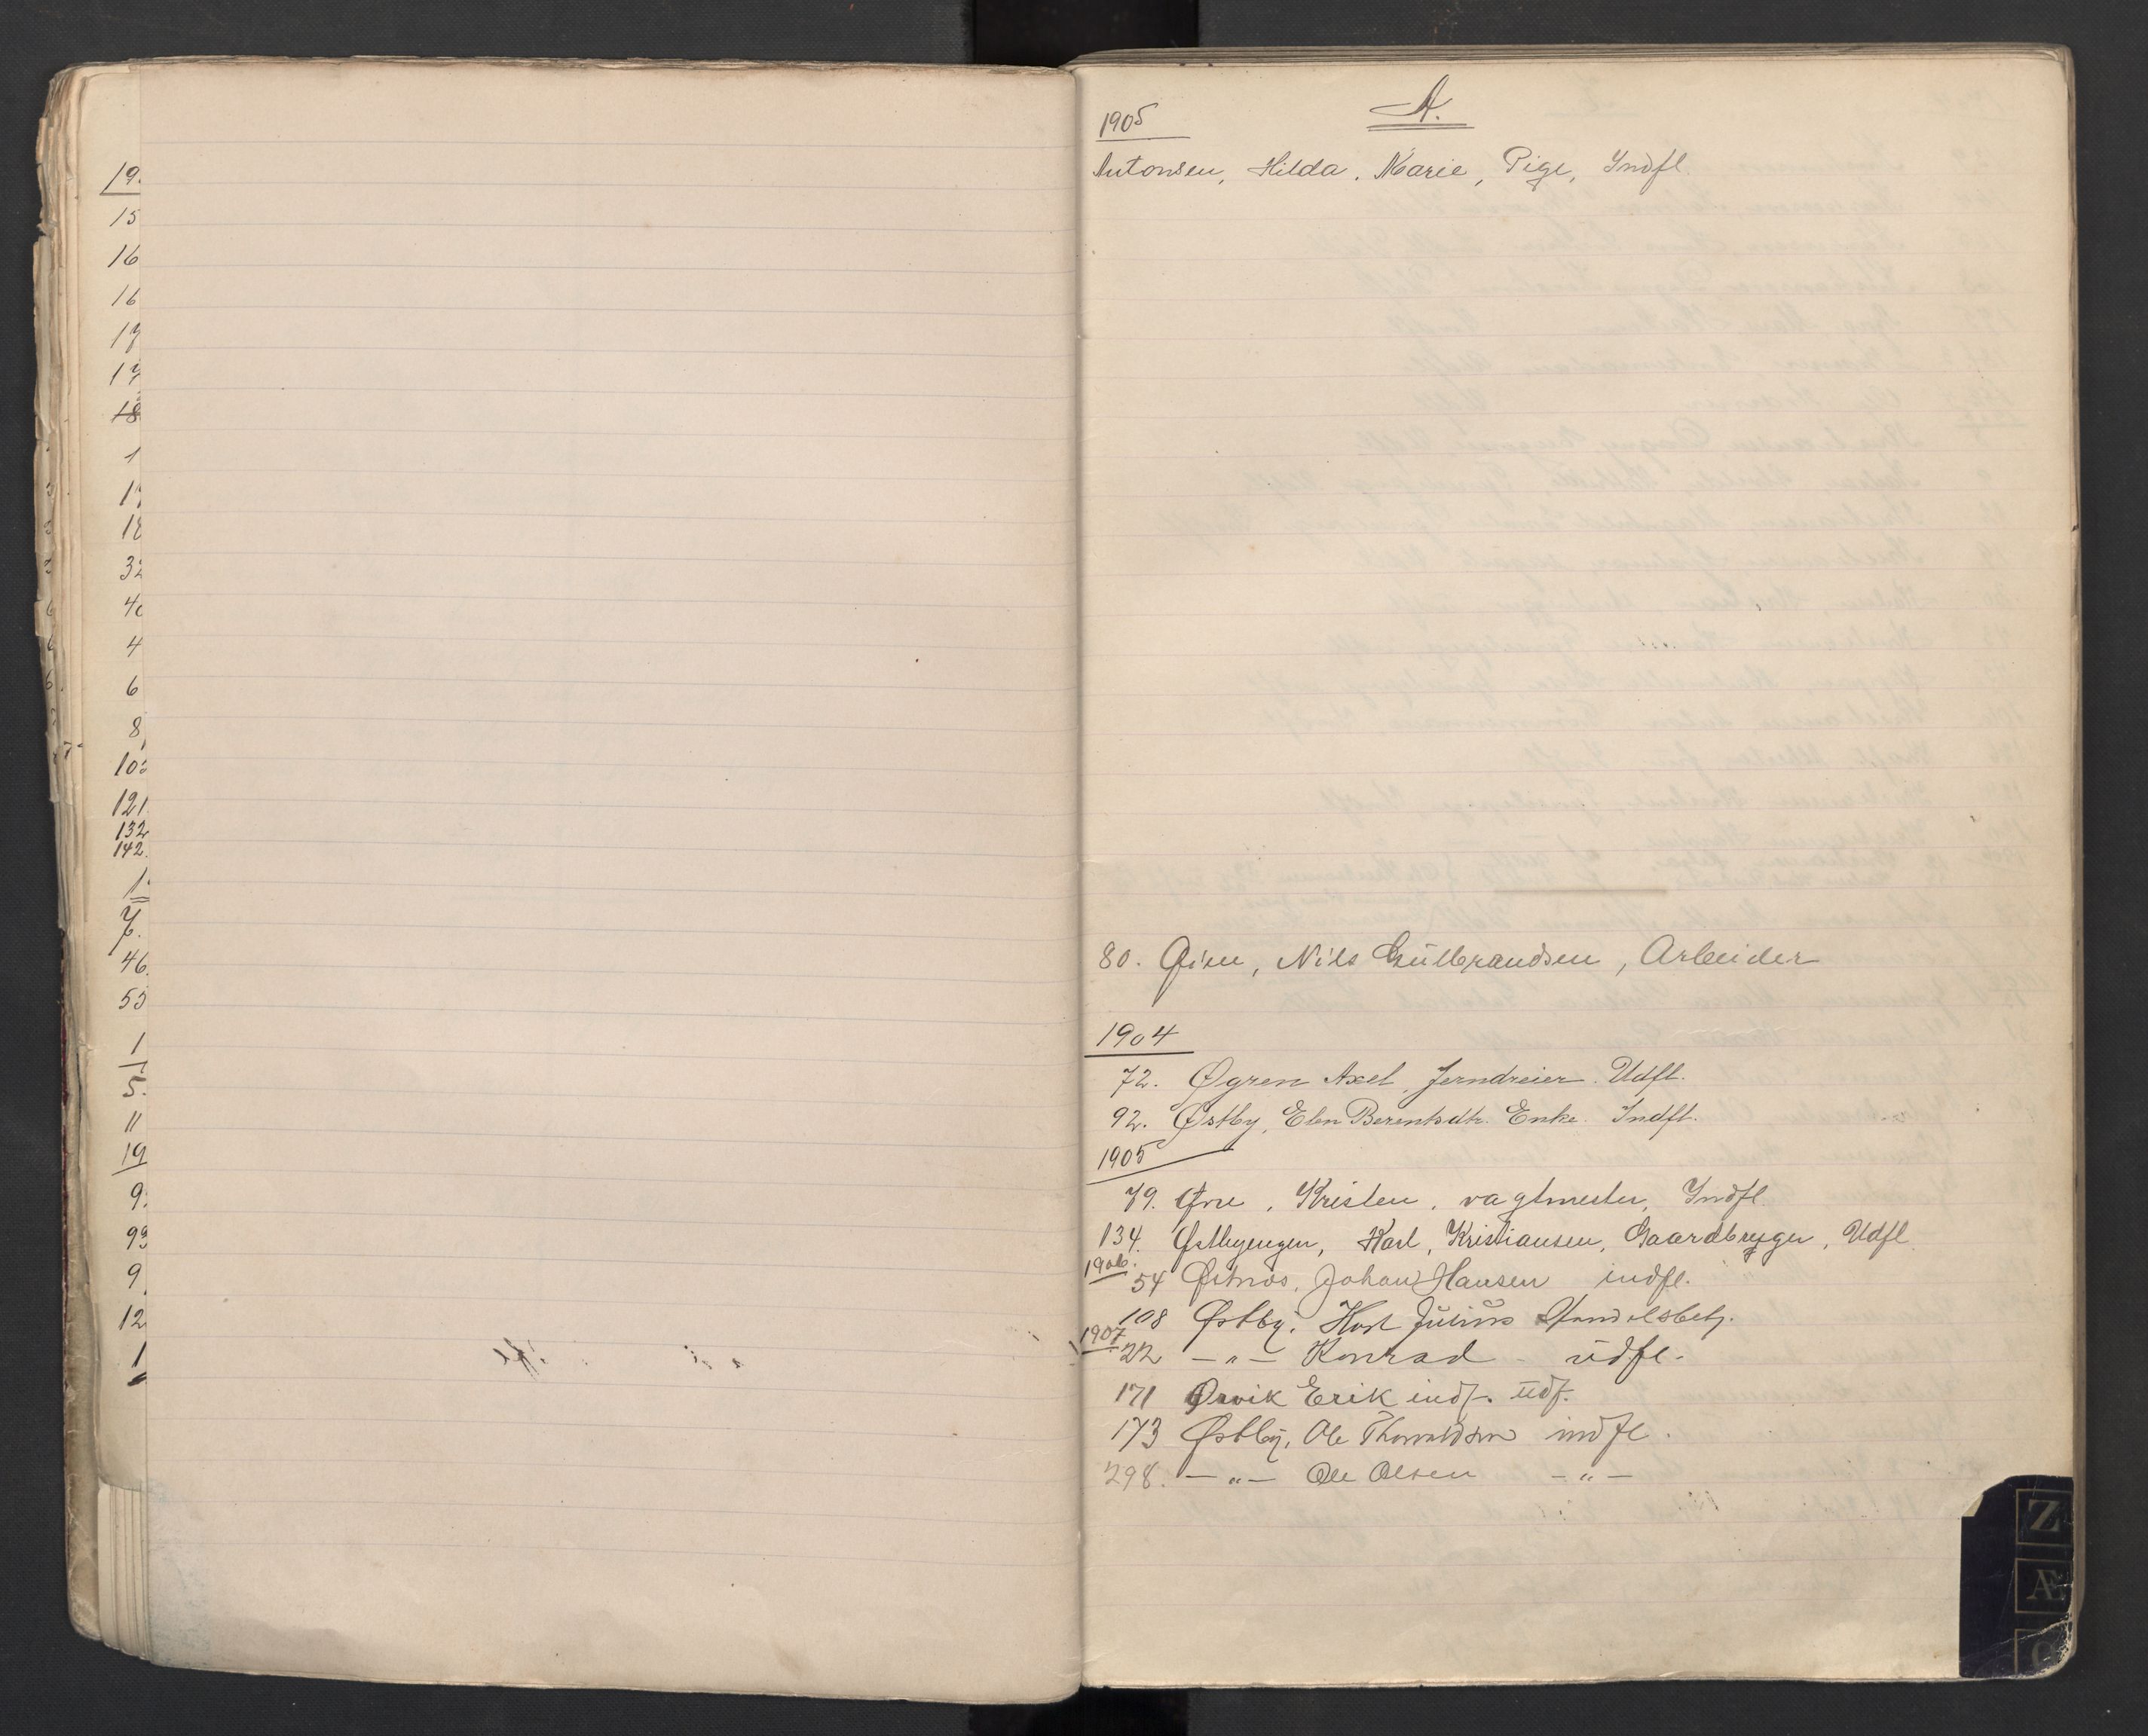 19.
15
16
16
17
17
18
1
1
18
32
40
4
6
8
10
121
132
142.
1
7.
46.
55
1
5.
11
19
9
93
9
12
1
A.
1905
Antonsen, Hilda. Marie, Pige, Indfl.
80. Øien, Nils Gulbrandsen, Arbeider
1904
72. Øgren Axel, Jerndreier. Udfl.
92. Østby, Elen Berentsdtr. Enke. Indfl.
1905
79. Øvre, Kristen, vagtmester, Indfl
134. Østbyengen, Karl, Kristiansen, Gaardbruger, Udfl
1906.
54 Østmos, Johan Hansen indfl.
108 Østby, Karl Julius Handelsbetj.
1907
22 -„- Konrad - udfl.
171 Ørvik Erik indf. udf.
173 Østby, Ole Thorvaldsen indfl.
298. -„- Ole Olsen -„-
Z
Æ